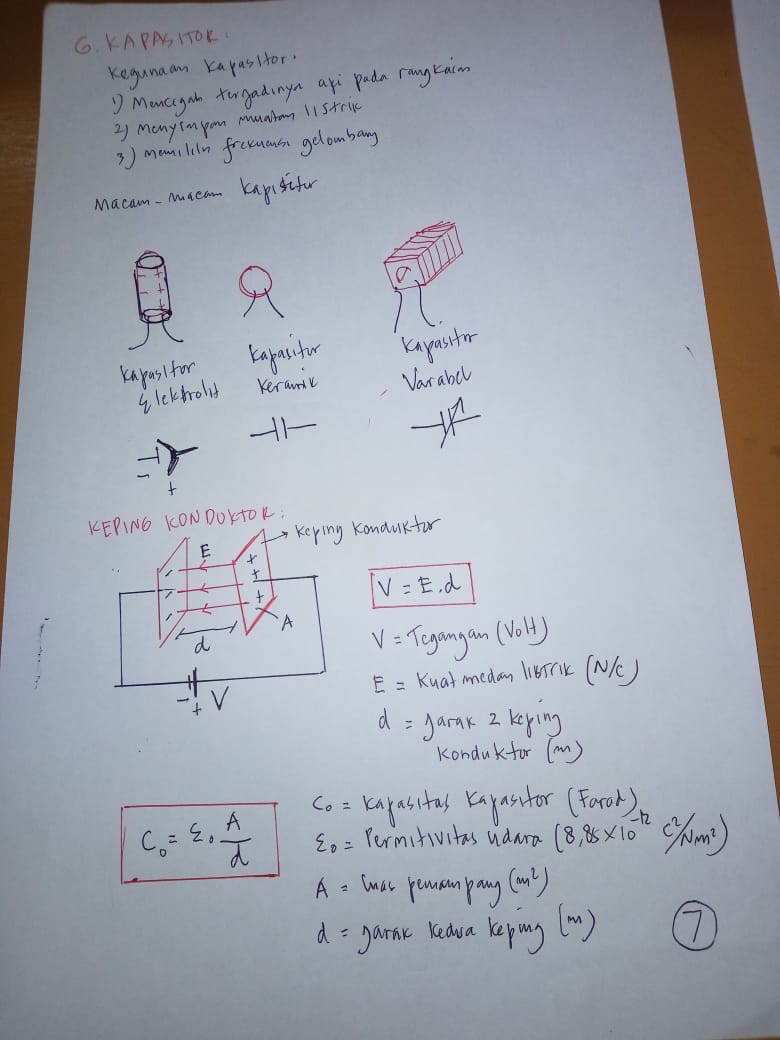 G. KAPASITOR.
Kegunaan Kapasitor.
1) Mencegah terjadinya api pada rangkaian
2) Menyimpan muatan listrik
3) Memilih frekuensi gelombang
Macam-macam Kapisitor
Kapasitor
Elektrolit
Kapasitor
Keramik
Kapasitor
Varabel
-
+
KEPING KONDUKTOR:
E
Keping Konduktor
+
+
+
A
d
- + V
V = E.d
V = Tegangan (Volt)
E = Kuat medan listrik (N/C)
d = jarak 2 keping
Konduktor (m)
C₀ = ε₀ A/d
C₀ = Kapasitas Kapasitor (Farad)
ε₀ = Permitivitas udara (8,85 x 10⁻¹² C²/Nm²)
A = luas penampang (m²)
d = jarak kedua keping (m)
7